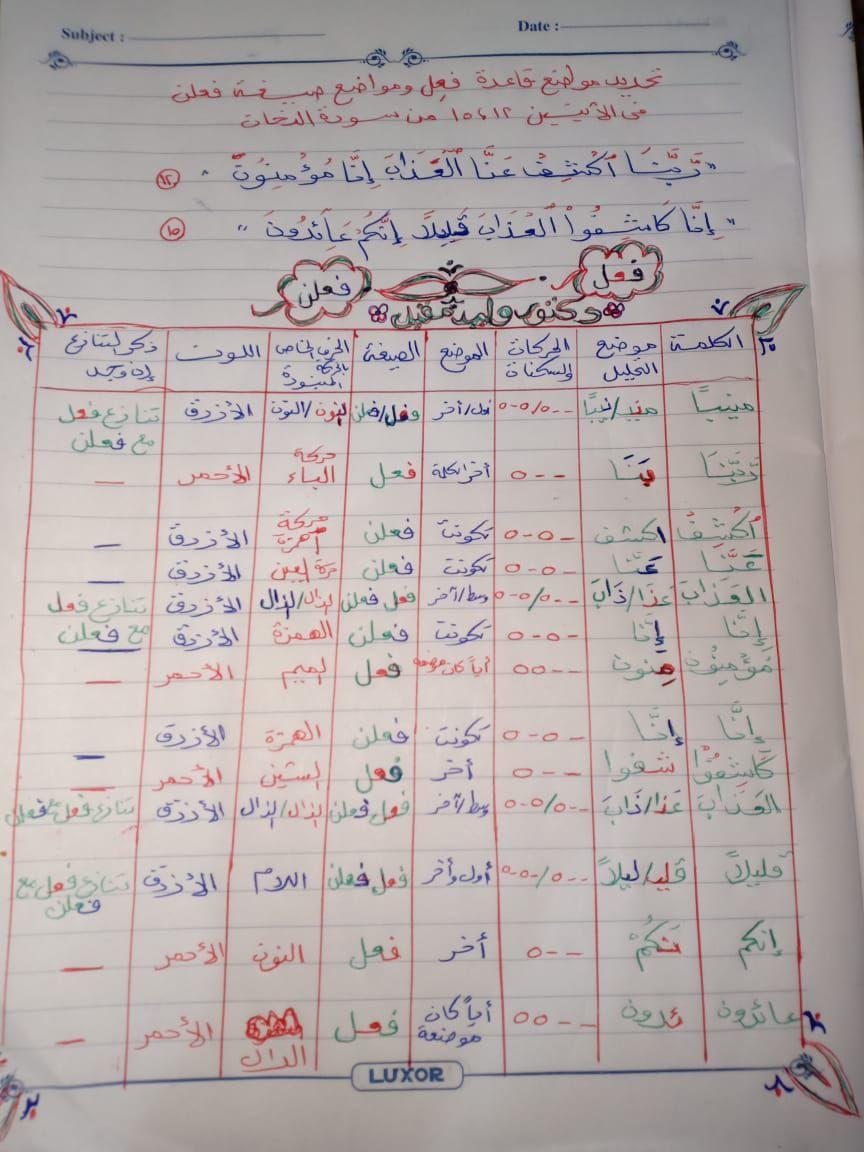 Subject :
Date :
تحديد مواضع قاعدة فعل ومواضع صيغة فعلن
في الآيتين ١٢، ١٥ من سورة الدخان
"رَّبَّنَا ٱكْشِفْ عَنَّا ٱلْعَذَابَ إِنَّا مُؤْمِنُونَ" ١٢
"إِنَّا كَاشِفُوا۟ الْعَذَابَ قَلِيلًا إِنَّكُمْ عَائِدُونَ" ١٥
فعل فعلن
الكلمة موضع التحليل الحركات والسكنات الموضع الصيغة الحرف الخاص بالحركة المنشودة اللون ذكر التنازع إن وجد
منيباً منيبـ/نيباً --٥/-٥-٥ أول/آخر فعل/فعلن النون/النون الأزرق تنازع فعل مع فعلن
رَبَّنَا بَنَا --٥ آخر الكلمة فعل حركة الباء الأحمر —
ٱكْشِفْ اكشف -٥-٥ تكونت فعلن حركة الهمزة الأزرق —
عَنَّا عَنَّا -٥-٥ تكونت فعلن حركة العين الأزرق —
العَذَابَ عَذَا/ذَابَ --٥/-٥-٥ وسط/آخر فعل فعلن الذال/الذال الأزرق تنازع فعل مع فعلن
إِنَّا إِنَّا -٥-٥ تكونت فعلن الهمزة الأزرق
مُؤْمِنُونَ مِنون --٥٥ أياً كان موضعه فعل الميم الأحمر —
إِنَّا إنَّا -٥-٥ تكونت فعلن الهمزة الأزرق —
كَاشِفُوا۟ شفوا --٥ آخر فعل الشين الأحمر —
العَذَابَ عَذا/ذَابَ --٥/-٥-٥ وسط/آخر فعل فعلن الذال/الذال الأزرق تنازع فعل مع فعلن
قليلاً قليـ/ليلاً --٥/-٥-٥ أول وآخر فعل فعلن اللام الأزرق تنازع فعل مع فعلن
إنكم نَكُمْ --٥ آخر فعل النون الأحمر —
عائدون ئدون --٥٥ أياً كان موضعه فعل الدال الأحمر —
LUXOR